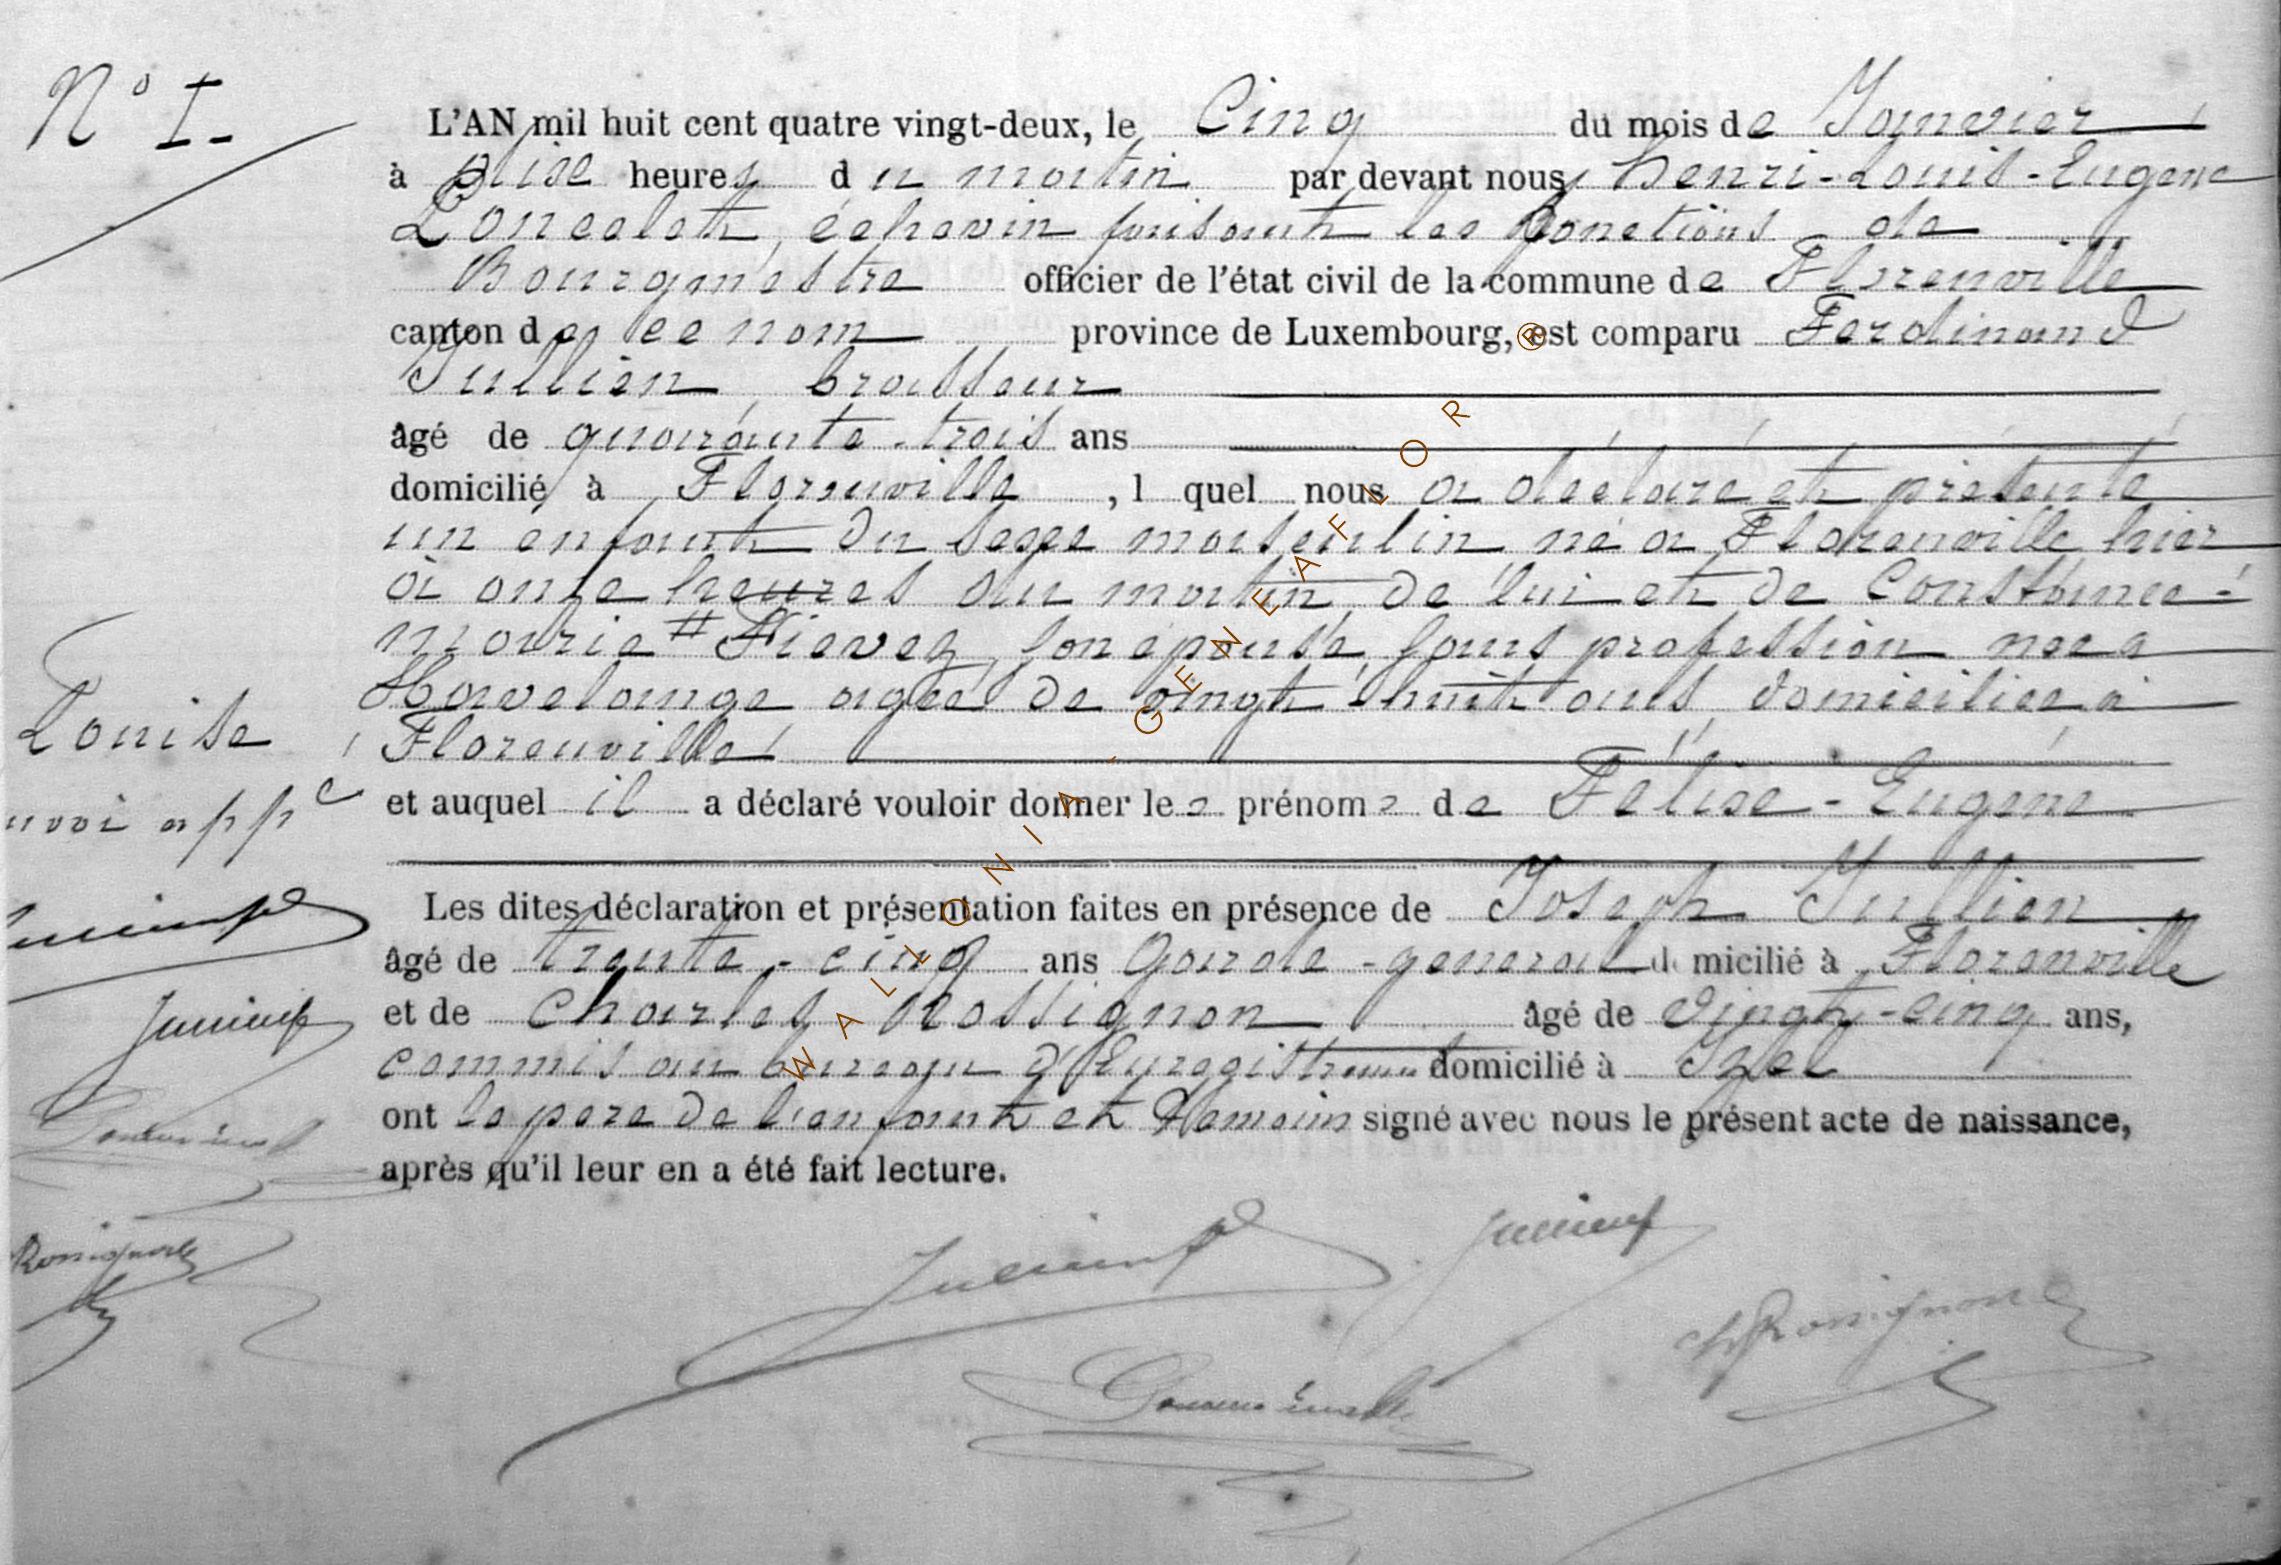 N° I.
L'AN mil huit cent quatre vingt-deux, le Cinq du mois de Janvier
à heures du matin par devant nous Henri-Louis-Eugène
Poncelet, échevin faisant les fonctions de
Bourgmestre officier de l'état civil de la commune de Florenville
canton de ce nom province de Luxembourg, est comparu Ferdinand
Jullien brasseur
âgé de quarante-trois ans
domicilié à Florenville, l quel nous a déclaré et présenté
un enfant du sexe masculin né à Florenville hier
à onze heures du matin, de lui et de Constance-
marie # Nievez, son épouse, sans profession née à
Havelange agée de vingt-huit ans, domiciliée à
Florenville
Louise
et auquel il a déclaré vouloir donner les prénoms de Félise-Eugène
app
Les dites déclaration et présentation faites en présence de Joseph Jullien
âgé de trente-cinq ans Garde-general domicilié à Florenville
et de Charles Rossignon âgé de vingt-cinq ans,
commis au bureau d'Enregistrement domicilié à Izel
ont le père de l'enfant et témoins signé avec nous le présent acte de naissance,
après qu'il leur en a été fait lecture.
Rossignon
Jullien
Jullien
Ch Rossignon
WALLONIA-GENEAFLOR®